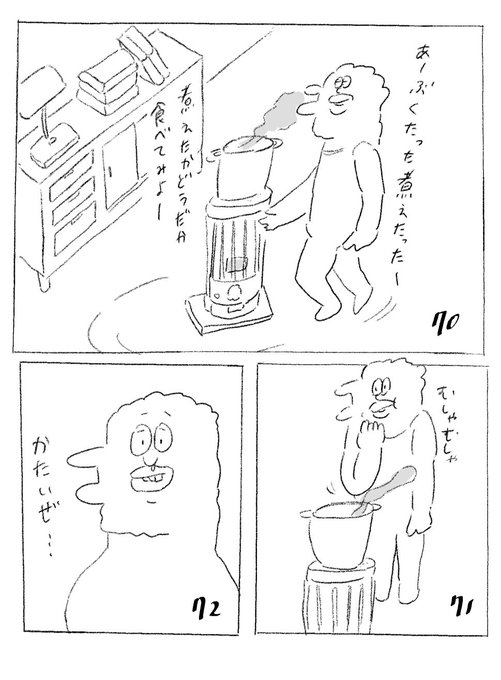 あーぶくたった煮えたったー
煮えたかどうだか
食べてみよー
70
むしゃむしゃ
71
かたいぜ…
72